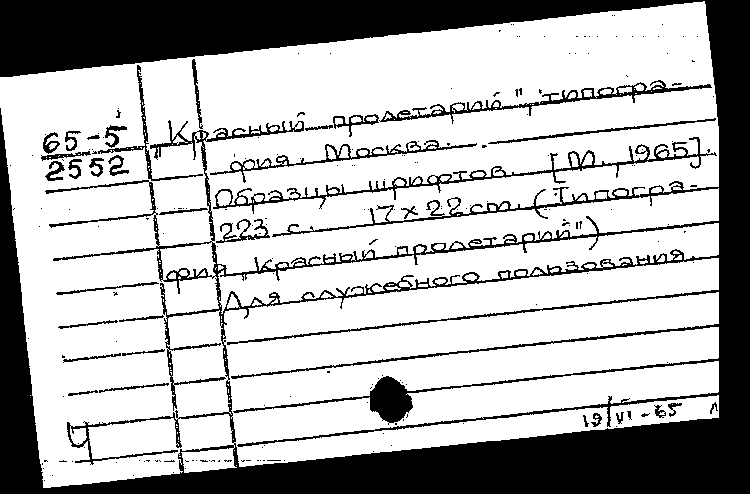 65-5
2552
„Красный пролетарий", типогра-
фия. Москва.
Образцы шрифтов. [М., 1965].
223 с. 17×22 cm. (Типогра-
фия „Красный пролетарий")
Для служебного пользования.
Ч
19/VI-65